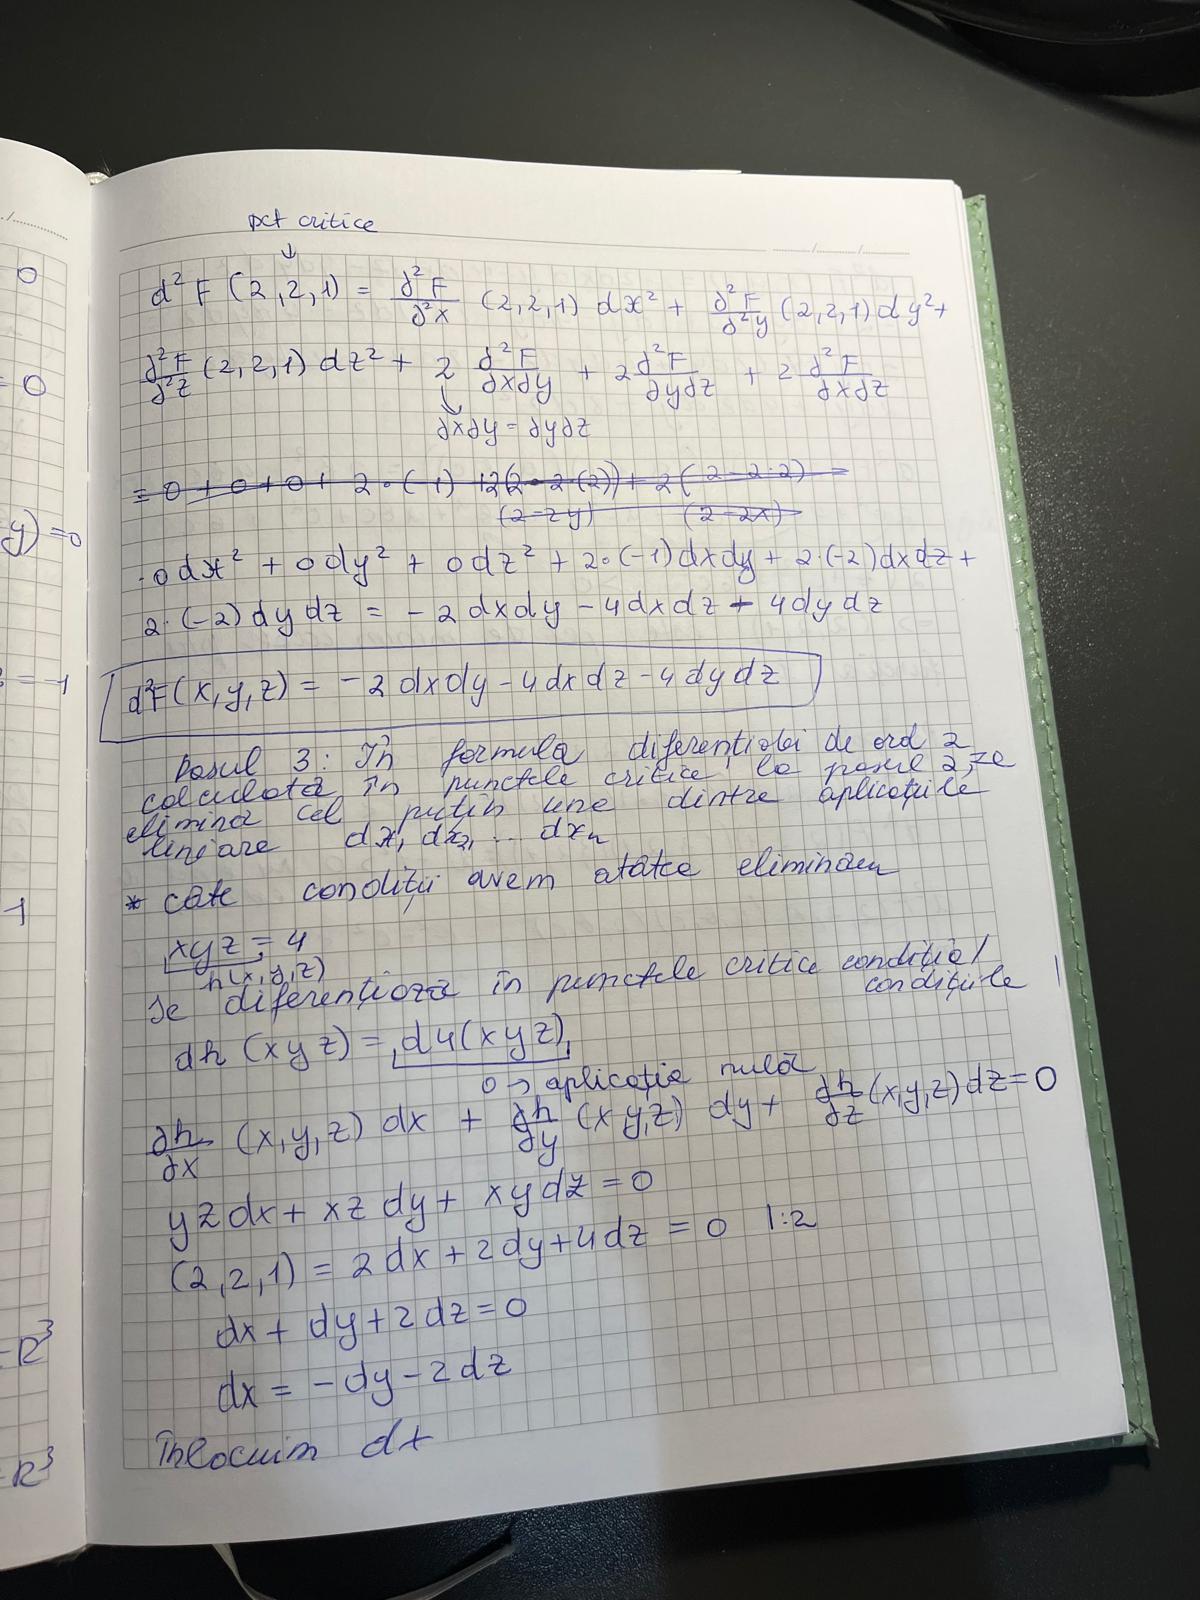 pct critice
↓
d²F (2,2,1) = ∂²F/∂²x (2,2,1) dx² + ∂²F/∂²y (2,2,1) dy² +
∂²F/∂²z (2,2,1) dz² + 2 ∂²F/∂x∂y + 2 ∂²F/∂y∂z + 2 ∂²F/∂x∂z
∂x∂y = ∂y∂z
= 0 + 0 + 0 + 2·(-1) + 2(2-2·(2)) + 2(2-2·2) =
(2-2y) (2-2x)
0dx² + 0dy² + 0dz² + 2·(-1)dxdy + 2·(-2)dxdz +
2·(-2)dydz = -2dxdy - 4dxdz - 4dydz
d²F(x,y,z) = -2dxdy - 4dxdz - 4dydz
Pasul 3: În formula diferențialei de ord 2
calculată în punctele critice la pasul 2, se
elimină cel puțin una dintre aplicațiile
liniare dx, dx₂, ... dxn
* câte condiții avem atâtea eliminăm
xyz = 4
h(x,y,z)
Se diferențiază în punctele critice condițial
condițiile
dh (xyz) = d4(xyz)
0 → aplicația nulă
∂h/∂x (x,y,z) dx + ∂h/∂y (x,y,z) dy + ∂h/∂z (x,y,z) dz = 0
yzdx + xzdy + xydz = 0
(2,2,1) = 2dx + 2dy + 4dz = 0 |:2
dx + dy + 2dz = 0
dx = -dy - 2dz
Înlocuim dx
0
= 0
y) = 0
= -1
-1
= R³
= R³